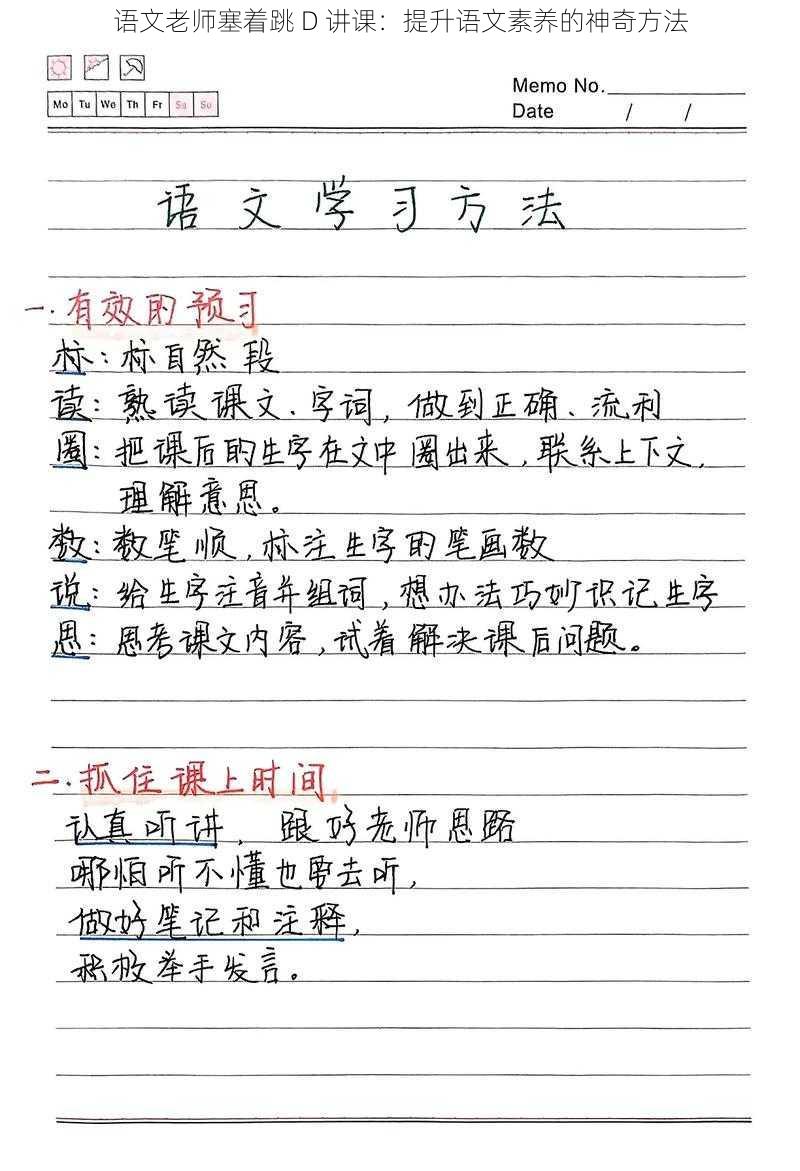 语文老师塞着跳 D 讲课：提升语文素养的神奇方法
Mo Tu We Th Fr Sa Su
Memo No.
Date / /
语文学习方法
一.有效的预习
标：标自然段
读：熟读课文、字词，做到正确、流利
圈：把课后的生字在文中圈出来，联系上下文，
理解意思。
数：数笔顺，标注生字的笔画数
说：给生字注音并组词，想办法巧妙识记生字
思：思考课文内容，试着解决课后问题。
二.抓住课上时间
认真听讲，跟好老师思路
哪怕听不懂也要去听，
做好笔记和注释，
积极举手发言。